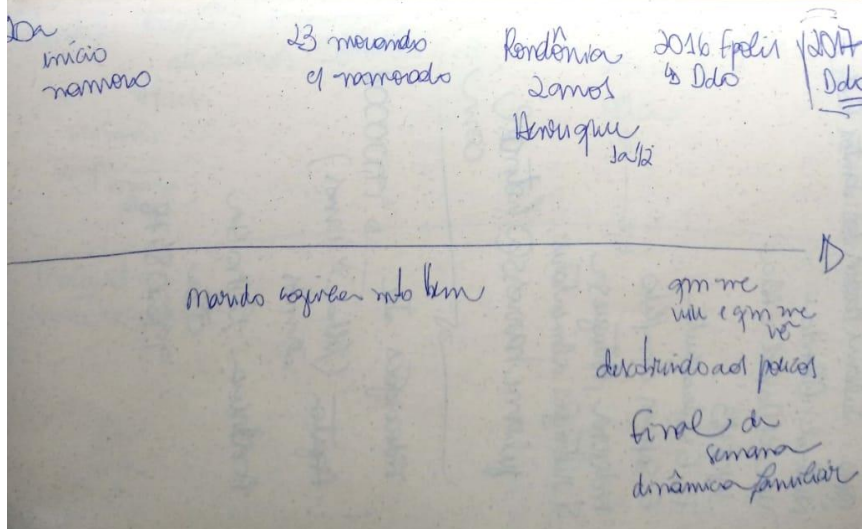 20a
início
namoro
23 morando
c/ namorado
Rondônia
2 anos
Henrique
1a1/2
2016 Fpolis
↳ Ddo
2017
Ddo
marido cozinha mto bem
qm me
viu e qm me
vê
descobrindo aos poucos
Final de
semana
dinâmica familiar